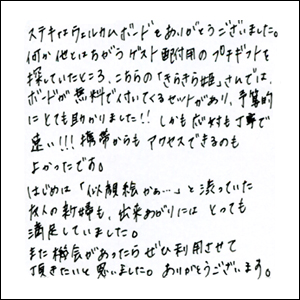 ステキなウェルカムボードをありがとうございました。
何か他とはちがうゲスト配付用のプチギフトを
探していたところ、こちらの「きらきら姫」さんでは、
ボードが無料で付いてくるセットがあり、予算的
にとても助かりました!! しかも応対も丁寧で
速い!!! 携帯からもアクセスできるのも
よかったです。
はじめは「似顔絵かぁ…」と渋っていた
友人の新婦も、出来あがりにはとっても
満足していました。
また機会があったらぜひ利用させて
頂きたいと思いました。ありがとうございます。